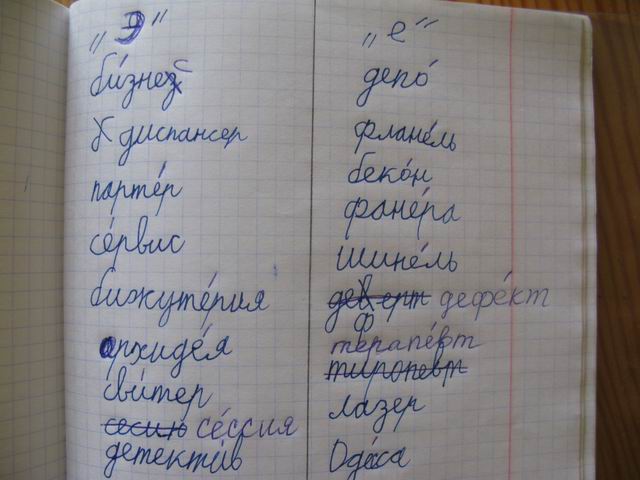 „Э“
би́знес
диспансер
парте́р
се́рвис
бижуте́рия
орхиде́я
сви́тер
се́ссия
детекти́в
„е“
депо́
флане́ль
беко́н
фане́ра
шине́ль
дефе́кт
терапе́вт
лазер